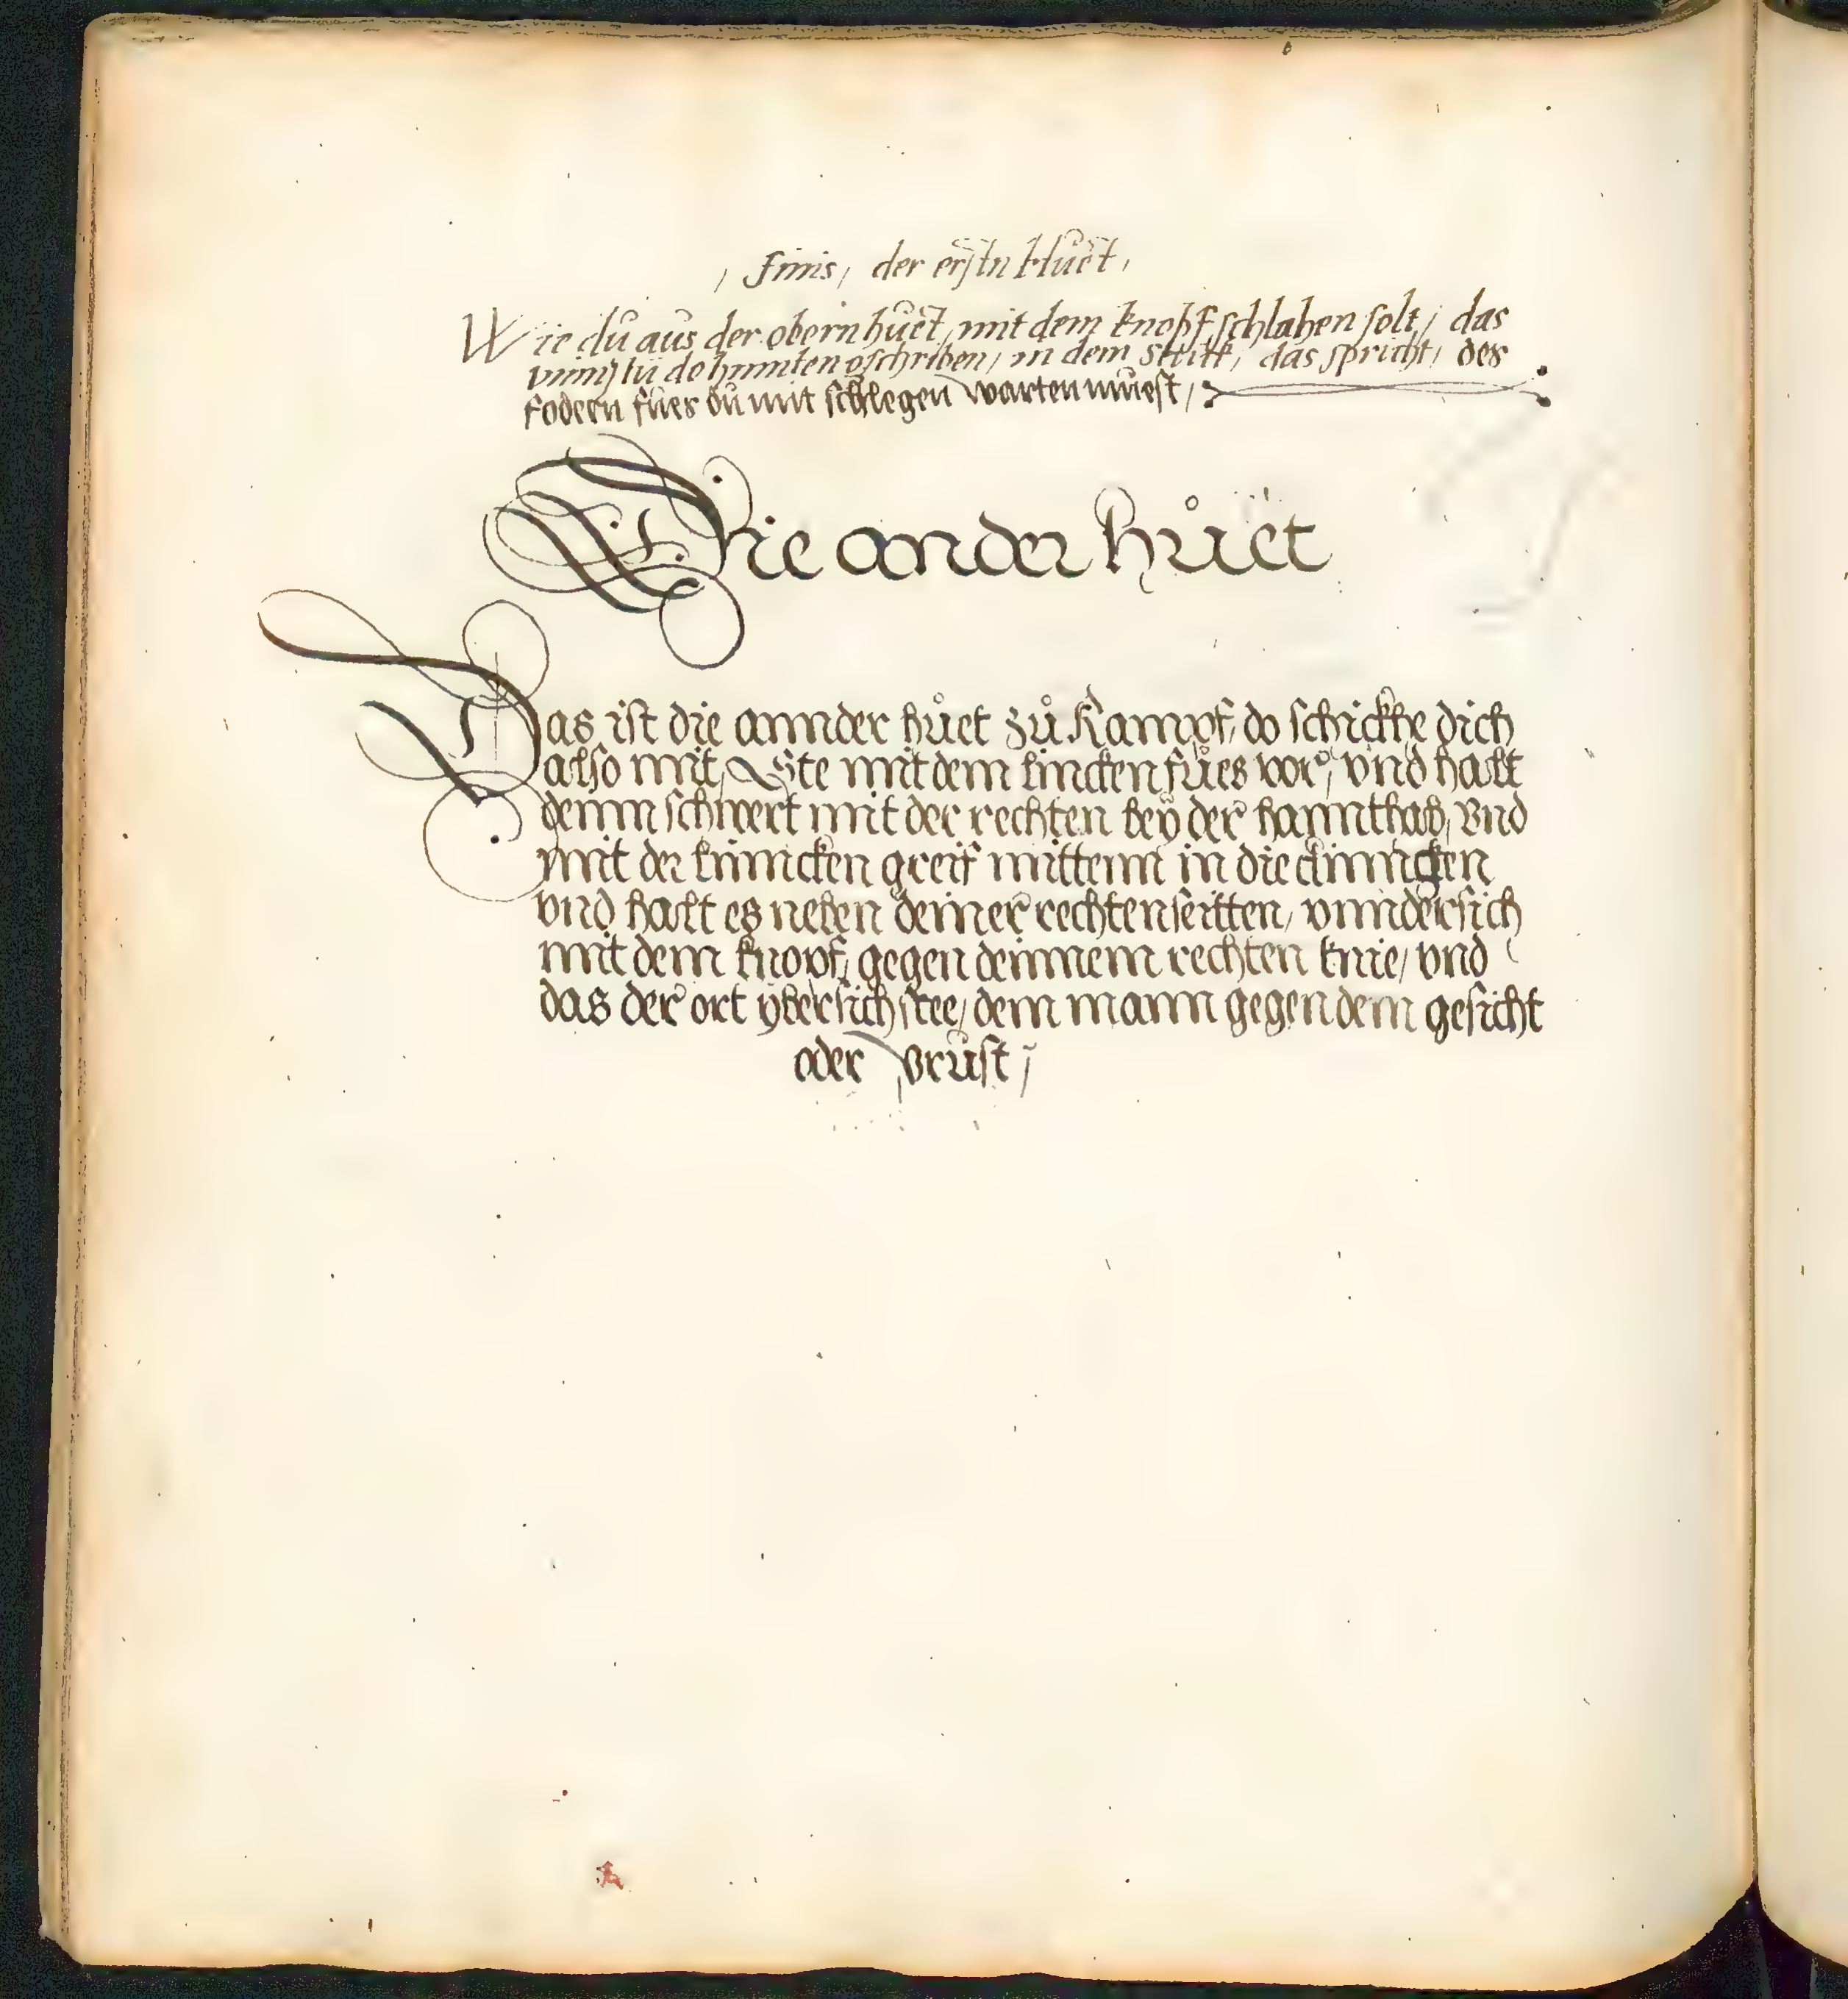 / Finis / der erstn Huet /
Wie du aus der obern huet / mit dem knopf schlahen solt / das
do hunnten gschriben / in dem stukh / das spricht / des
fodern fues du mit schlegen warten muest /
Die ander hůet
Das ist die annder hůet zů Kampf / do schickhe dich
also mit / Ste mit dem lincken fůes vor / vnd halt
deinn schwert mit der rechten bey der hannthab / vnd
mit der linncken greif mittenn in die clinngen
vnd halt es neben deiner rechten seitten / vnndersich
mit dem knopf / gegen deinnem rechten knie / vnd
das der ort vbersich stee / dem mann gegen dem gesicht
oder brust /